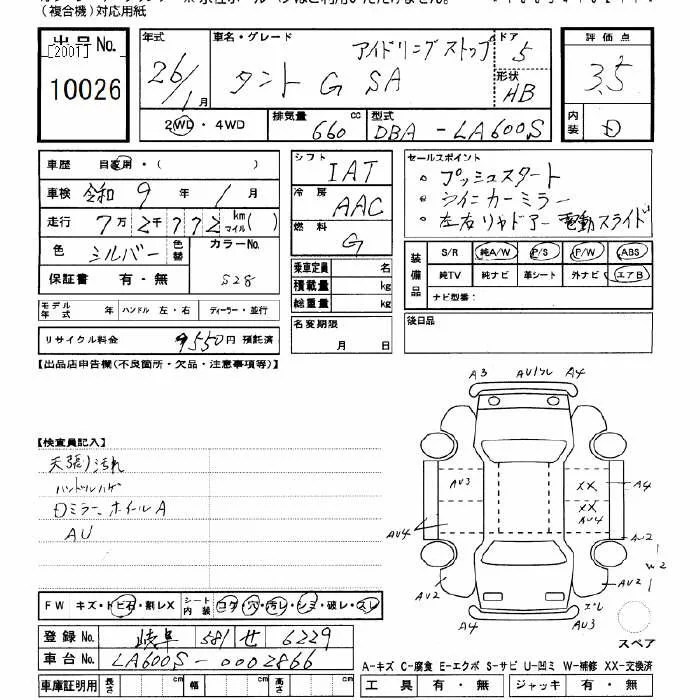 (複合機)対応用紙
出品No.
[2001]
10026
年式
26/1月
車名・グレード
アイドリングストップ
タント G SA
ドア
5
形状
HB
評価点
3.5
内装
D
2WD・4WD
排気量
660 cc
型式
DBA-LA600S
車歴 自家用・( )
車検 令和 9年 1月
走行 7万2千772 km マイル( )
色 シルバー 色替
カラーNo.
S28
保証書 有・無
モデル年式 年 ハンドル 左・右 ディーラー・並行
リサイクル料金 9550円 預託済
シフト
IAT
冷房
AAC
燃料
G
乗車定員 名
積載量 kg
総重量 kg
名変期限
月 日
セールスポイント
・プッシュスタート
・ウインカーミラー
・左右リヤドアー電動スライド
装備品
S/R 純A/W P/S P/W ABS
純TV 純ナビ 革シート 外ナビ エアB
ナビ型番:
後日品
【出品店申告欄(不良箇所・欠品・注意事項等)】
【検査員記入】
天張り汚れ
ハンドルハゲ
Dミラー、ホイールA
AU
A3 A4
AU3 XX A4
XX
AU4 AU4
AU2
W2
AU2 AU2
A4 AU3
スペア
FW キズ・トビ石・割レX
シート内装 コゲ・穴・汚レ・シミ・破レ・スレ
登録No. 岐阜 581 せ 6229
車台No. LA600S-0002866
車庫証明用 長さ cm 幅 cm 高さ cm
A-キズ C-腐食 E-エクボ S-サビ U-凹ミ W-補修 XX-交換済
工具 有・無 ジャッキ 有・無